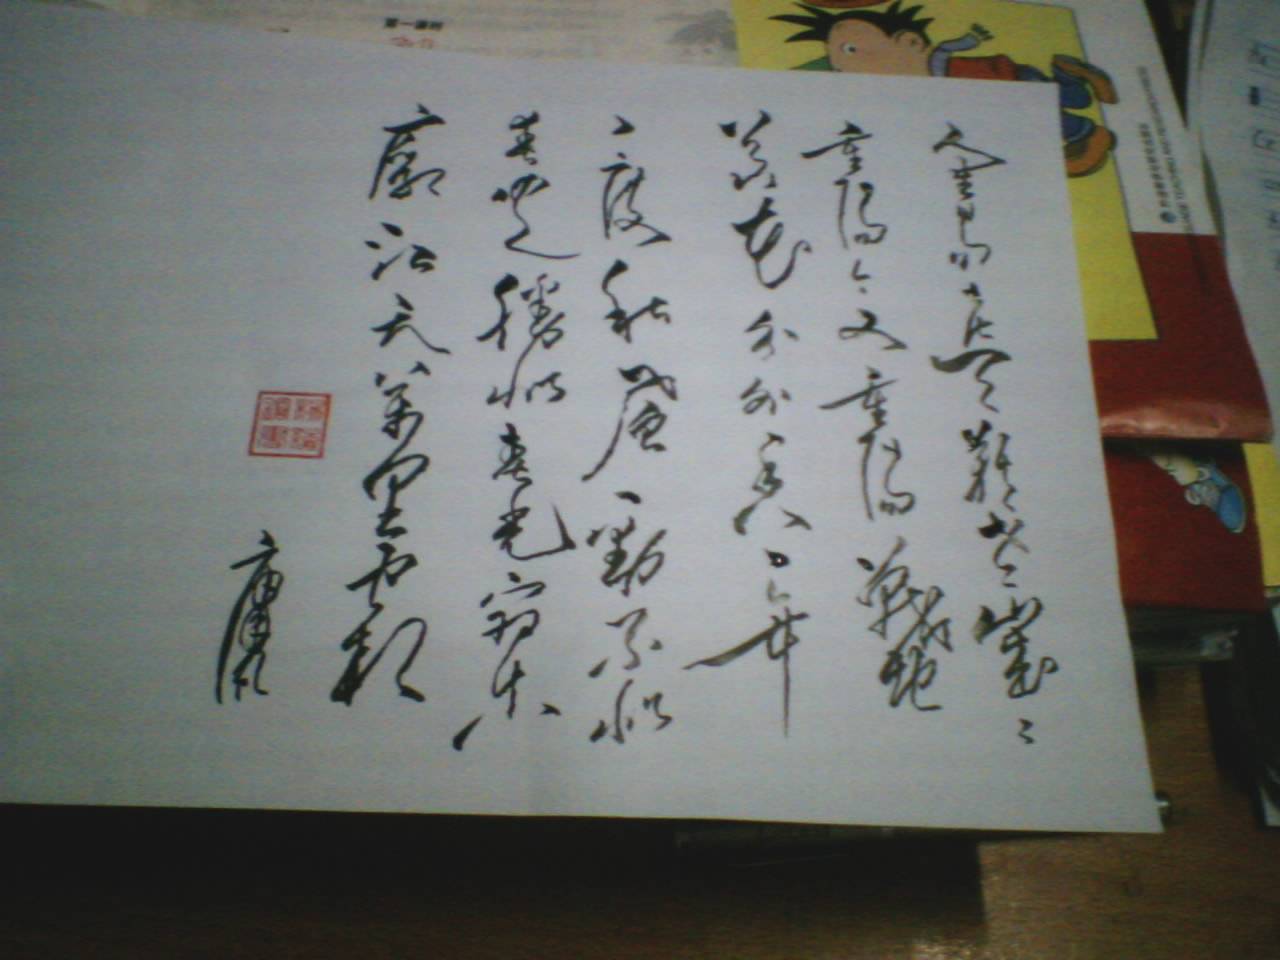 第一课时
人生易老天難老歲〻
重陽今又重陽戰地
黃花分外香一年
一度秋風勁不似
春光勝似春光寥
廓江天萬里霜